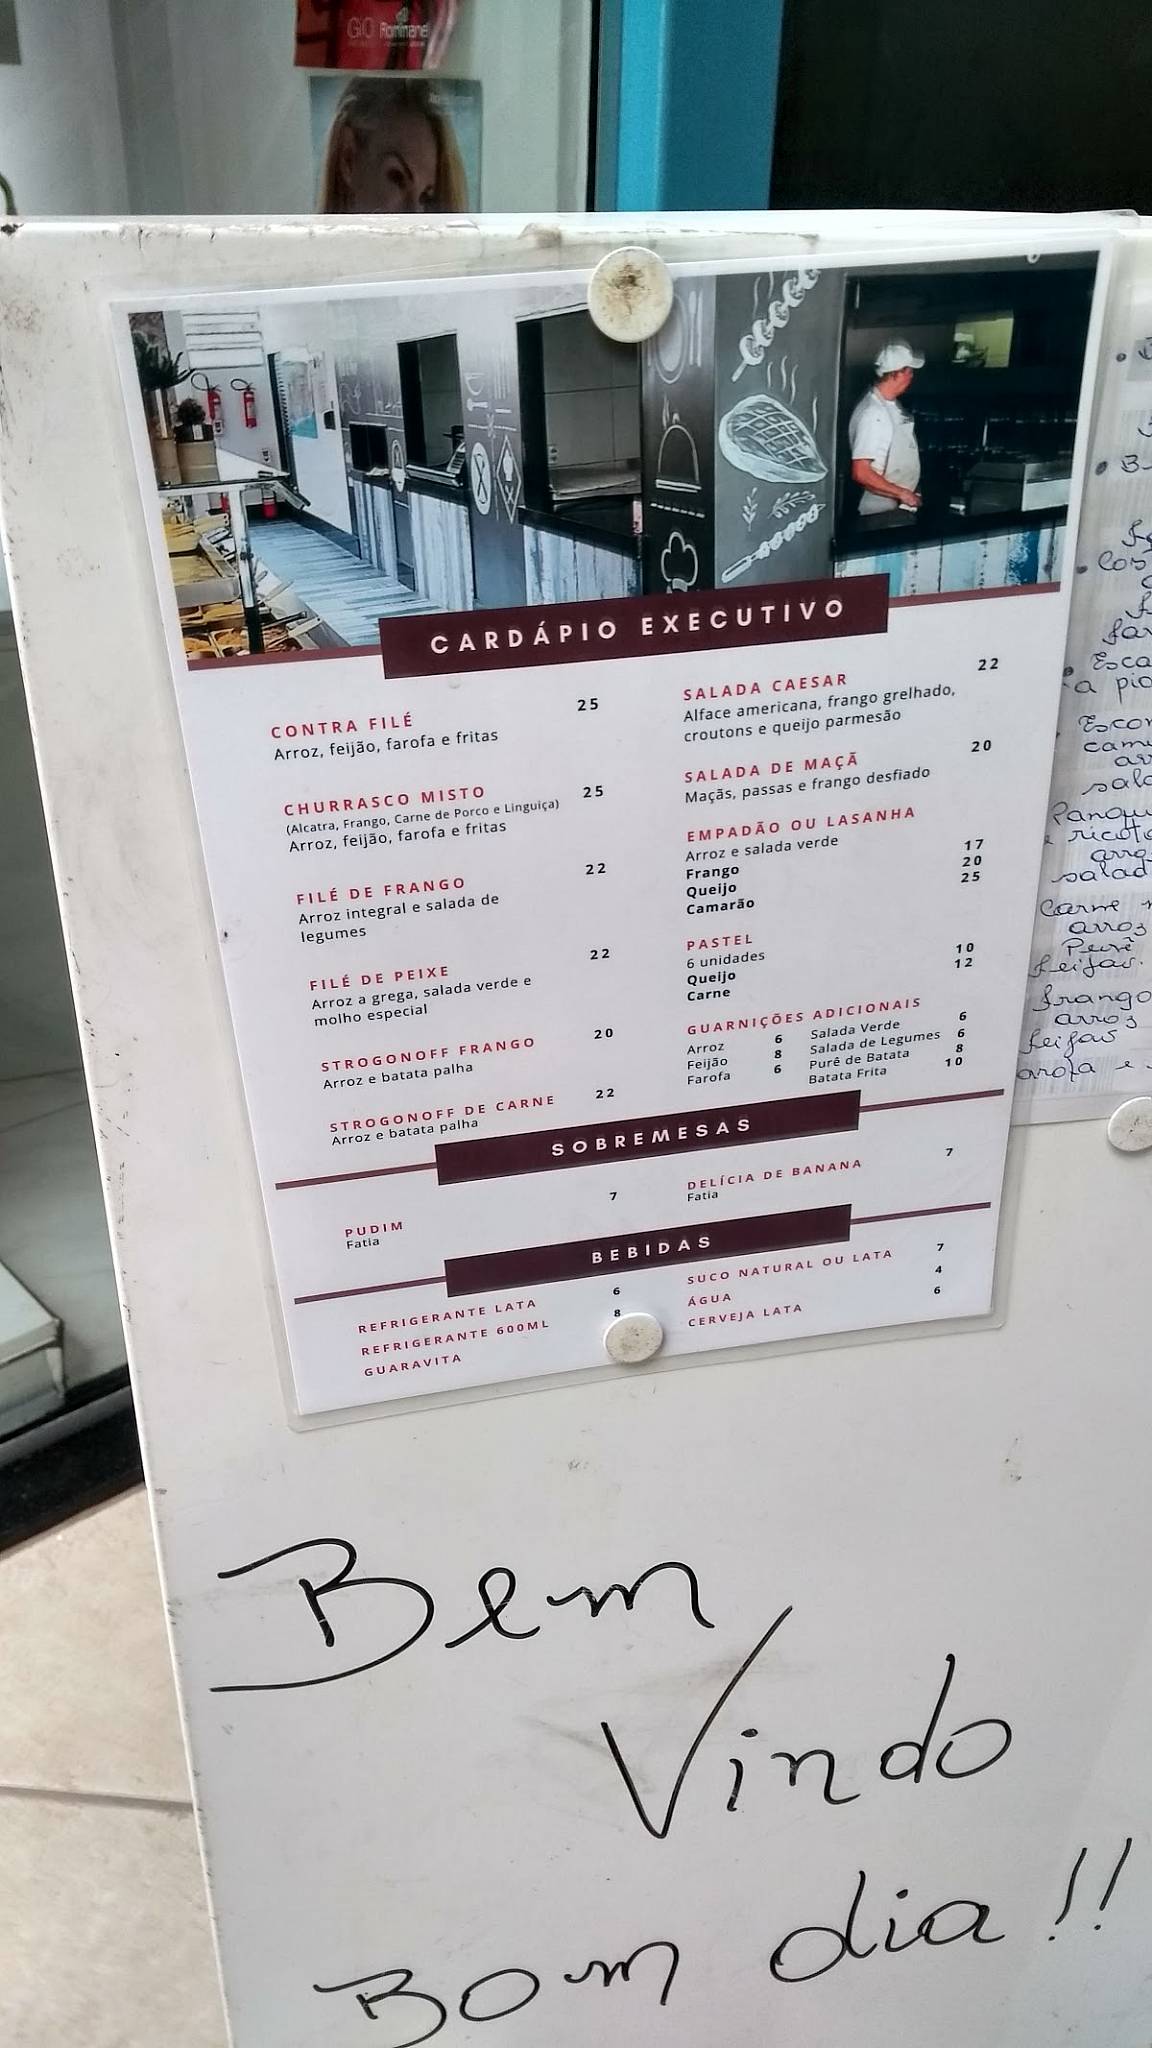 Rommanel
CARDÁPIO EXECUTIVO
CONTRA FILÉ 25
Arroz, feijão, farofa e fritas
CHURRASCO MISTO 25
(Alcatra, Frango, Carne de Porco e Linguiça)
Arroz, feijão, farofa e fritas
FILÉ DE FRANGO 22
Arroz integral e salada de
legumes
FILÉ DE PEIXE 22
Arroz a grega, salada verde e
molho especial
STROGONOFF FRANGO 20
Arroz e batata palha
STROGONOFF DE CARNE 22
Arroz e batata palha
SALADA CAESAR 22
Alface americana, frango grelhado,
croutons e queijo parmesão
SALADA DE MAÇÃ 20
Maçãs, passas e frango desfiado
EMPADÃO OU LASANHA
Arroz e salada verde
Frango 17
Queijo 20
Camarão 25
PASTEL
6 unidades
Queijo 10
Carne 12
GUARNIÇÕES ADICIONAIS
Arroz 6 Salada Verde 6
Feijão 8 Salada de Legumes 6
Farofa 6 Purê de Batata 8
Batata Frita 10
SOBREMESAS
PUDIM 7
Fatia
DELÍCIA DE BANANA 7
Fatia
BEBIDAS
REFRIGERANTE LATA 6
REFRIGERANTE 600ML 8
GUARAVITA
SUCO NATURAL OU LATA 7
ÁGUA 4
CERVEJA LATA 6
arroz
Purê
feijão.
frango
arroz
Bem
Vindo
Bom dia!!